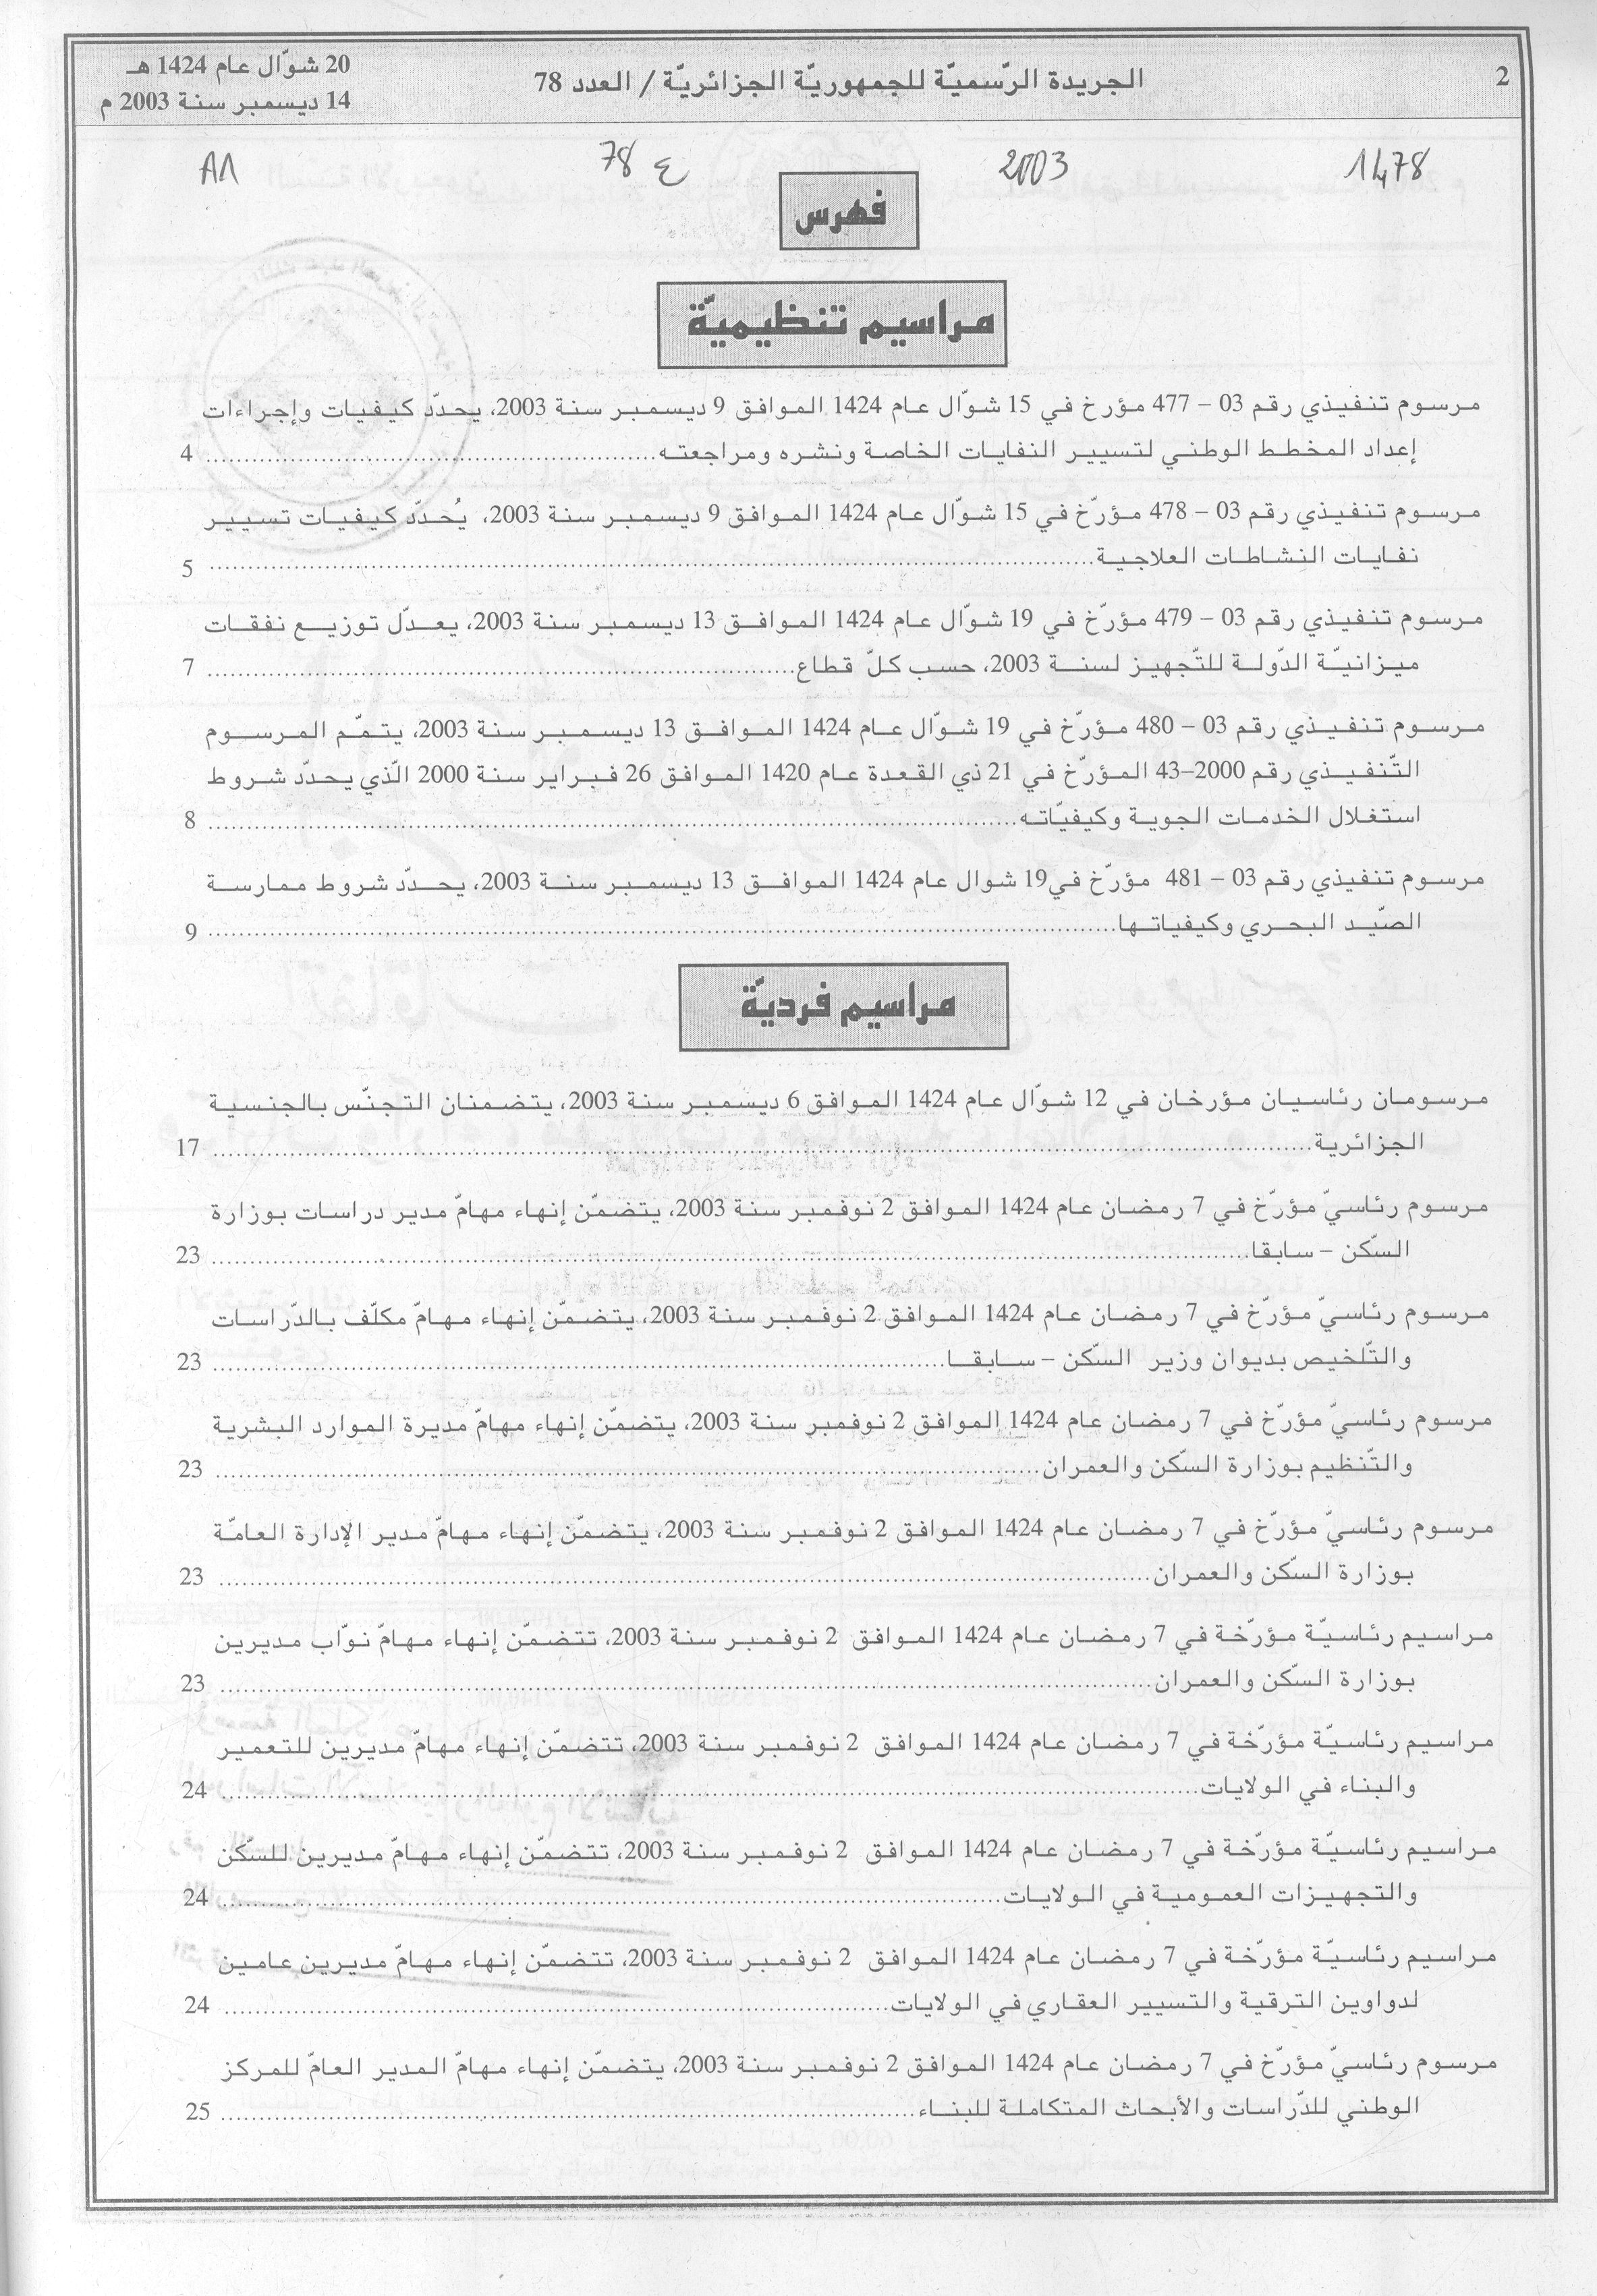 2
الجريدة الرّسميّة للجمهوريّة الجزائريّة / العدد 78
20 شوّال عام 1424 هـ
14 ديسمبر سنة 2003 م
1478 2003 ع 78 A1
فهرس
مراسيم تنظيميّة
مرسوم تنفيذي رقم 03 – 477 مؤرخ في 15 شوّال عام 1424 الموافق 9 ديسمبر سنة 2003، يحدّد كيفيات وإجراءات
إعداد المخطط الوطني لتسيير النفايات الخاصة ونشره ومراجعته.................... 4
مرسوم تنفيذي رقم 03 – 478 مؤرّخ في 15 شوّال عام 1424 الموافق 9 ديسمبر سنة 2003، يُحدّد كيفيات تسيير
نفايات النشاطات العلاجية.................... 5
مرسوم تنفيذي رقم 03 – 479 مؤرّخ في 19 شوّال عام 1424 الموافق 13 ديسمبر سنة 2003، يعدّل توزيع نفقات
ميزانيّة الدّولة للتّجهيز لسنة 2003، حسب كلّ قطاع.................... 7
مرسوم تنفيذي رقم 03 – 480 مؤرّخ في 19 شوّال عام 1424 الموافق 13 ديسمبر سنة 2003، يتمّم المرسوم
التّنفيذي رقم 2000–43 المؤرّخ في 21 ذي القعدة عام 1420 الموافق 26 فبراير سنة 2000 الّذي يحدّد شروط
استغلال الخدمات الجوية وكيفيّاته.................... 8
مرسوم تنفيذي رقم 03 – 481 مؤرّخ في19 شوال عام 1424 الموافق 13 ديسمبر سنة 2003، يحدّد شروط ممارسة
الصّيد البحري وكيفياتها.................... 9
مراسيم فرديّة
مرسومان رئاسيان مؤرخان في 12 شوّال عام 1424 الموافق 6 ديسمبر سنة 2003، يتضمنان التجنّس بالجنسية
الجزائرية.................... 17
مرسوم رئاسيّ مؤرّخ في 7 رمضان عام 1424 الموافق 2 نوفمبر سنة 2003، يتضمّن إنهاء مهامّ مدير دراسات بوزارة
السّكن – سابقا.................... 23
مرسوم رئاسيّ مؤرّخ في 7 رمضان عام 1424 الموافق 2 نوفمبر سنة 2003، يتضمّن إنهاء مهامّ مكلّف بالدّراسات
والتّلخيص بديوان وزير السّكن – سابقا.................... 23
مرسوم رئاسيّ مؤرّخ في 7 رمضان عام 1424 الموافق 2 نوفمبر سنة 2003، يتضمّن إنهاء مهامّ مديرة الموارد البشرية
والتّنظيم بوزارة السّكن والعمران.................... 23
مرسوم رئاسيّ مؤرّخ في 7 رمضان عام 1424 الموافق 2 نوفمبر سنة 2003، يتضمّن إنهاء مهامّ مدير الإدارة العامّة
بوزارة السّكن والعمران.................... 23
مراسيم رئاسيّة مؤرّخة في 7 رمضان عام 1424 الموافق 2 نوفمبر سنة 2003، تتضمّن إنهاء مهامّ نوّاب مديرين
بوزارة السّكن والعمران.................... 23
مراسيم رئاسيّة مؤرّخة في 7 رمضان عام 1424 الموافق 2 نوفمبر سنة 2003، تتضمّن إنهاء مهامّ مديرين للتعمير
والبناء في الولايات.................... 24
مراسيم رئاسيّة مؤرّخة في 7 رمضان عام 1424 الموافق 2 نوفمبر سنة 2003، تتضمّن إنهاء مهامّ مديرين للسّكن
والتجهيزات العمومية في الولايات.................... 24
مراسيم رئاسيّة مؤرّخة في 7 رمضان عام 1424 الموافق 2 نوفمبر سنة 2003، تتضمّن إنهاء مهامّ مديرين عامين
لدواوين الترقية والتسيير العقاري في الولايات.................... 24
مرسوم رئاسيّ مؤرّخ في 7 رمضان عام 1424 الموافق 2 نوفمبر سنة 2003، يتضمّن إنهاء مهامّ المدير العامّ للمركز
الوطني للدّراسات والأبحاث المتكاملة للبناء.................... 25